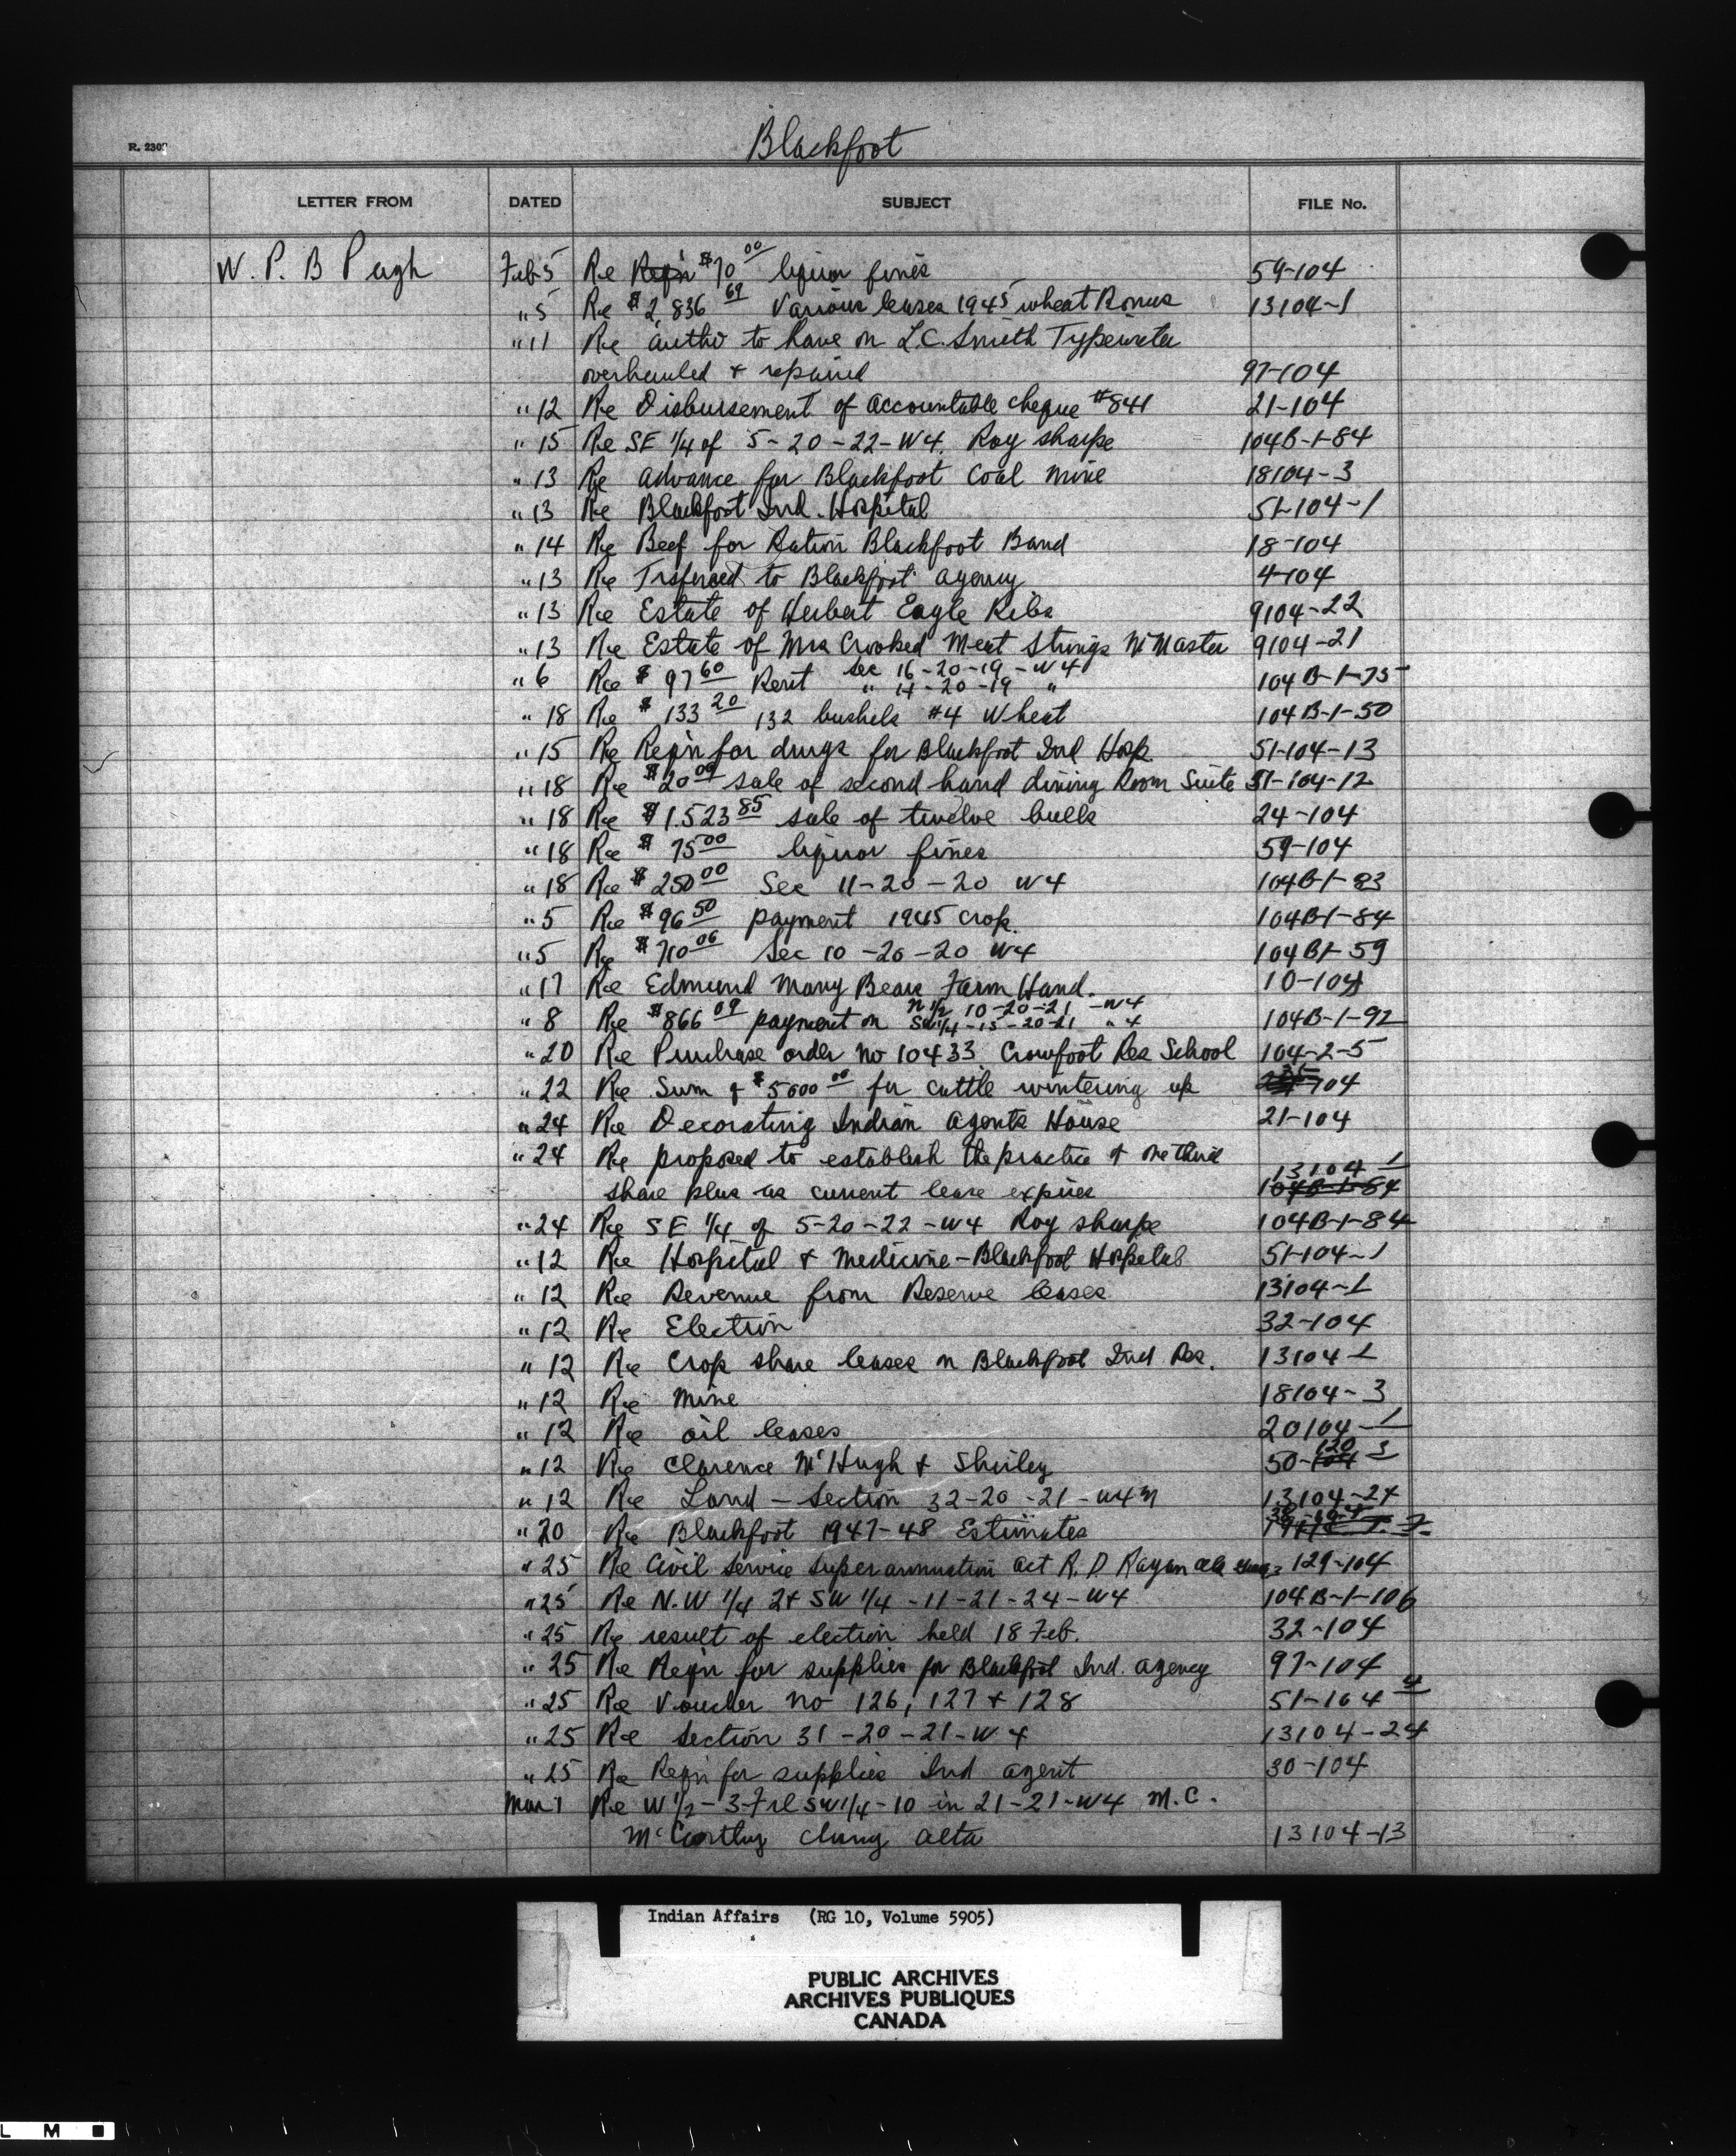 Blackfoot
R. 230
LETTER FROM DATED SUBJECT FILE No.
W. P. B Pugh Feb 5 Re Reqn $70 00 liquor fines 59-104
" 5 Re $2,836 69 Various leases 1945 wheat Bonus 13104-1
" 11 Re autho to have on L.C. Smith Typewriter
overhauled & repaired 97-104
" 12 Re Disbursement of accountable cheque #841 21-104
" 15 Re SE 1/4 of 5-20-22-W4. Roy Sharpe 104B-1-84
" 13 Re advance for Blackfoot Coal Mine 18104-3
" 13 Re Blackfoot Ind. Hospital 51-104-1
" 14 Re Beef for Ration Blackfoot Band 18-104
" 13 Re Trsferred to Blackfoot agency 4-104
" 13 Re Estate of Herbert Eagle Ribs 9104-22
" 13 Re Estate of Mrs Crooked Meat Strings McMaster 9104-21
" 6 Re $97 60 Rent Sec 16-20-19-W4 104B-1-75
" 14-20-19 "
" 18 Re $133 20 132 bushels #4 Wheat 104B-1-50
" 15 Re Reqn for drugs for Blackfoot Ind Hosp. 51-104-13
" 18 Re $20 00 sale of second hand dining Room Suite 51-104-12
" 18 Re $1.523 85 sale of twelve bulls 24-104
" 18 Re $75 00 liquor fines 59-104
" 18 Re $250 00 Sec 11-20-20 W4 104B-1-83
" 5 Re $96 50 payment 1945 crop. 104B-1-84
" 5 Re $710 06 Sec 10-20-20 W4 104B1-59
" 17 Re Edmund Many Bears Farm Hand. 10-104
" 8 Re $866 09 payment on N 1/2 10-20-21-W4 104B-1-92
SW 1/4-15-20-21 " 4
" 20 Re Purchase order no 10433 Crowfoot Res School 104-2-5
" 22 Re Sum of $5000 00 for cattle wintering up 104
" 24 Re Decorating Indian Agents House 21-104
" 24 Re proposed to establish the practice of one third
share plus as current lease expires 13104-1 104B-1-84
" 24 Re SE 1/4 of 5-20-22-W4 Roy Sharpe 104B-1-84
" 12 Re Hospital & Medicine - Blackfoot Hospital 51-104-1
" 12 Re Revenue from Reserve leases 13104-1
" 12 Re Election 32-104
" 12 Re Crop share leases on Blackfoot Ind. Res. 13104-1
" 12 Re Mine 18104-3
" 12 Re oil leases 20104-1
" 12 Re Clarence McHugh & Shirley 50-104 120-3
" 12 Re Land - Section 32-20-21-W4M 13104-24
" 20 Re Blackfoot 1947-48 Estimates
" 25 Re Civil Service Superannuation act R. D. Ragan 129-104
" 25 Re N.W 1/4 2 & SW 1/4 -11-21-24-W4 104B-1-106
" 25 Re result of election held 18 Feb. 32-104
" 25 Re Reqn for supplies for Blackfoot Ind. agency 97-104
" 25 Re Voucher no 126, 127 & 128 51-104-4
" 25 Re Section 31-20-21-W4 13104-24
" 25 Re Reqn for supplies Ind agent 30-104
Mar 1 Re W 1/2-3-Frl SW 1/4-10 in 21-21-W4 M.C.
McCarthy Cluny Alta 13104-13
Indian Affairs (RG 10, Volume 5905)
PUBLIC ARCHIVES
ARCHIVES PUBLIQUES
CANADA
L M